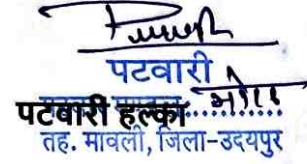 पटवारी
पटवारी हल्का
तह. मावली, जिला-उदयपुर